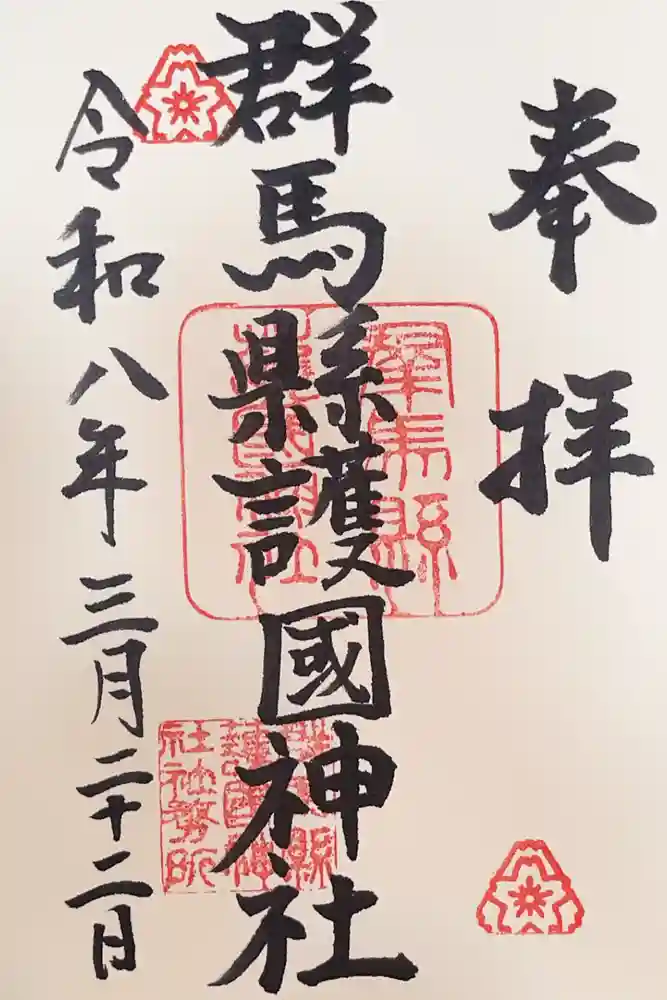 奉拝
群馬縣護國神社
令和八年三月二十二日
群馬縣
護國神社
群馬縣
護國神
社社務所